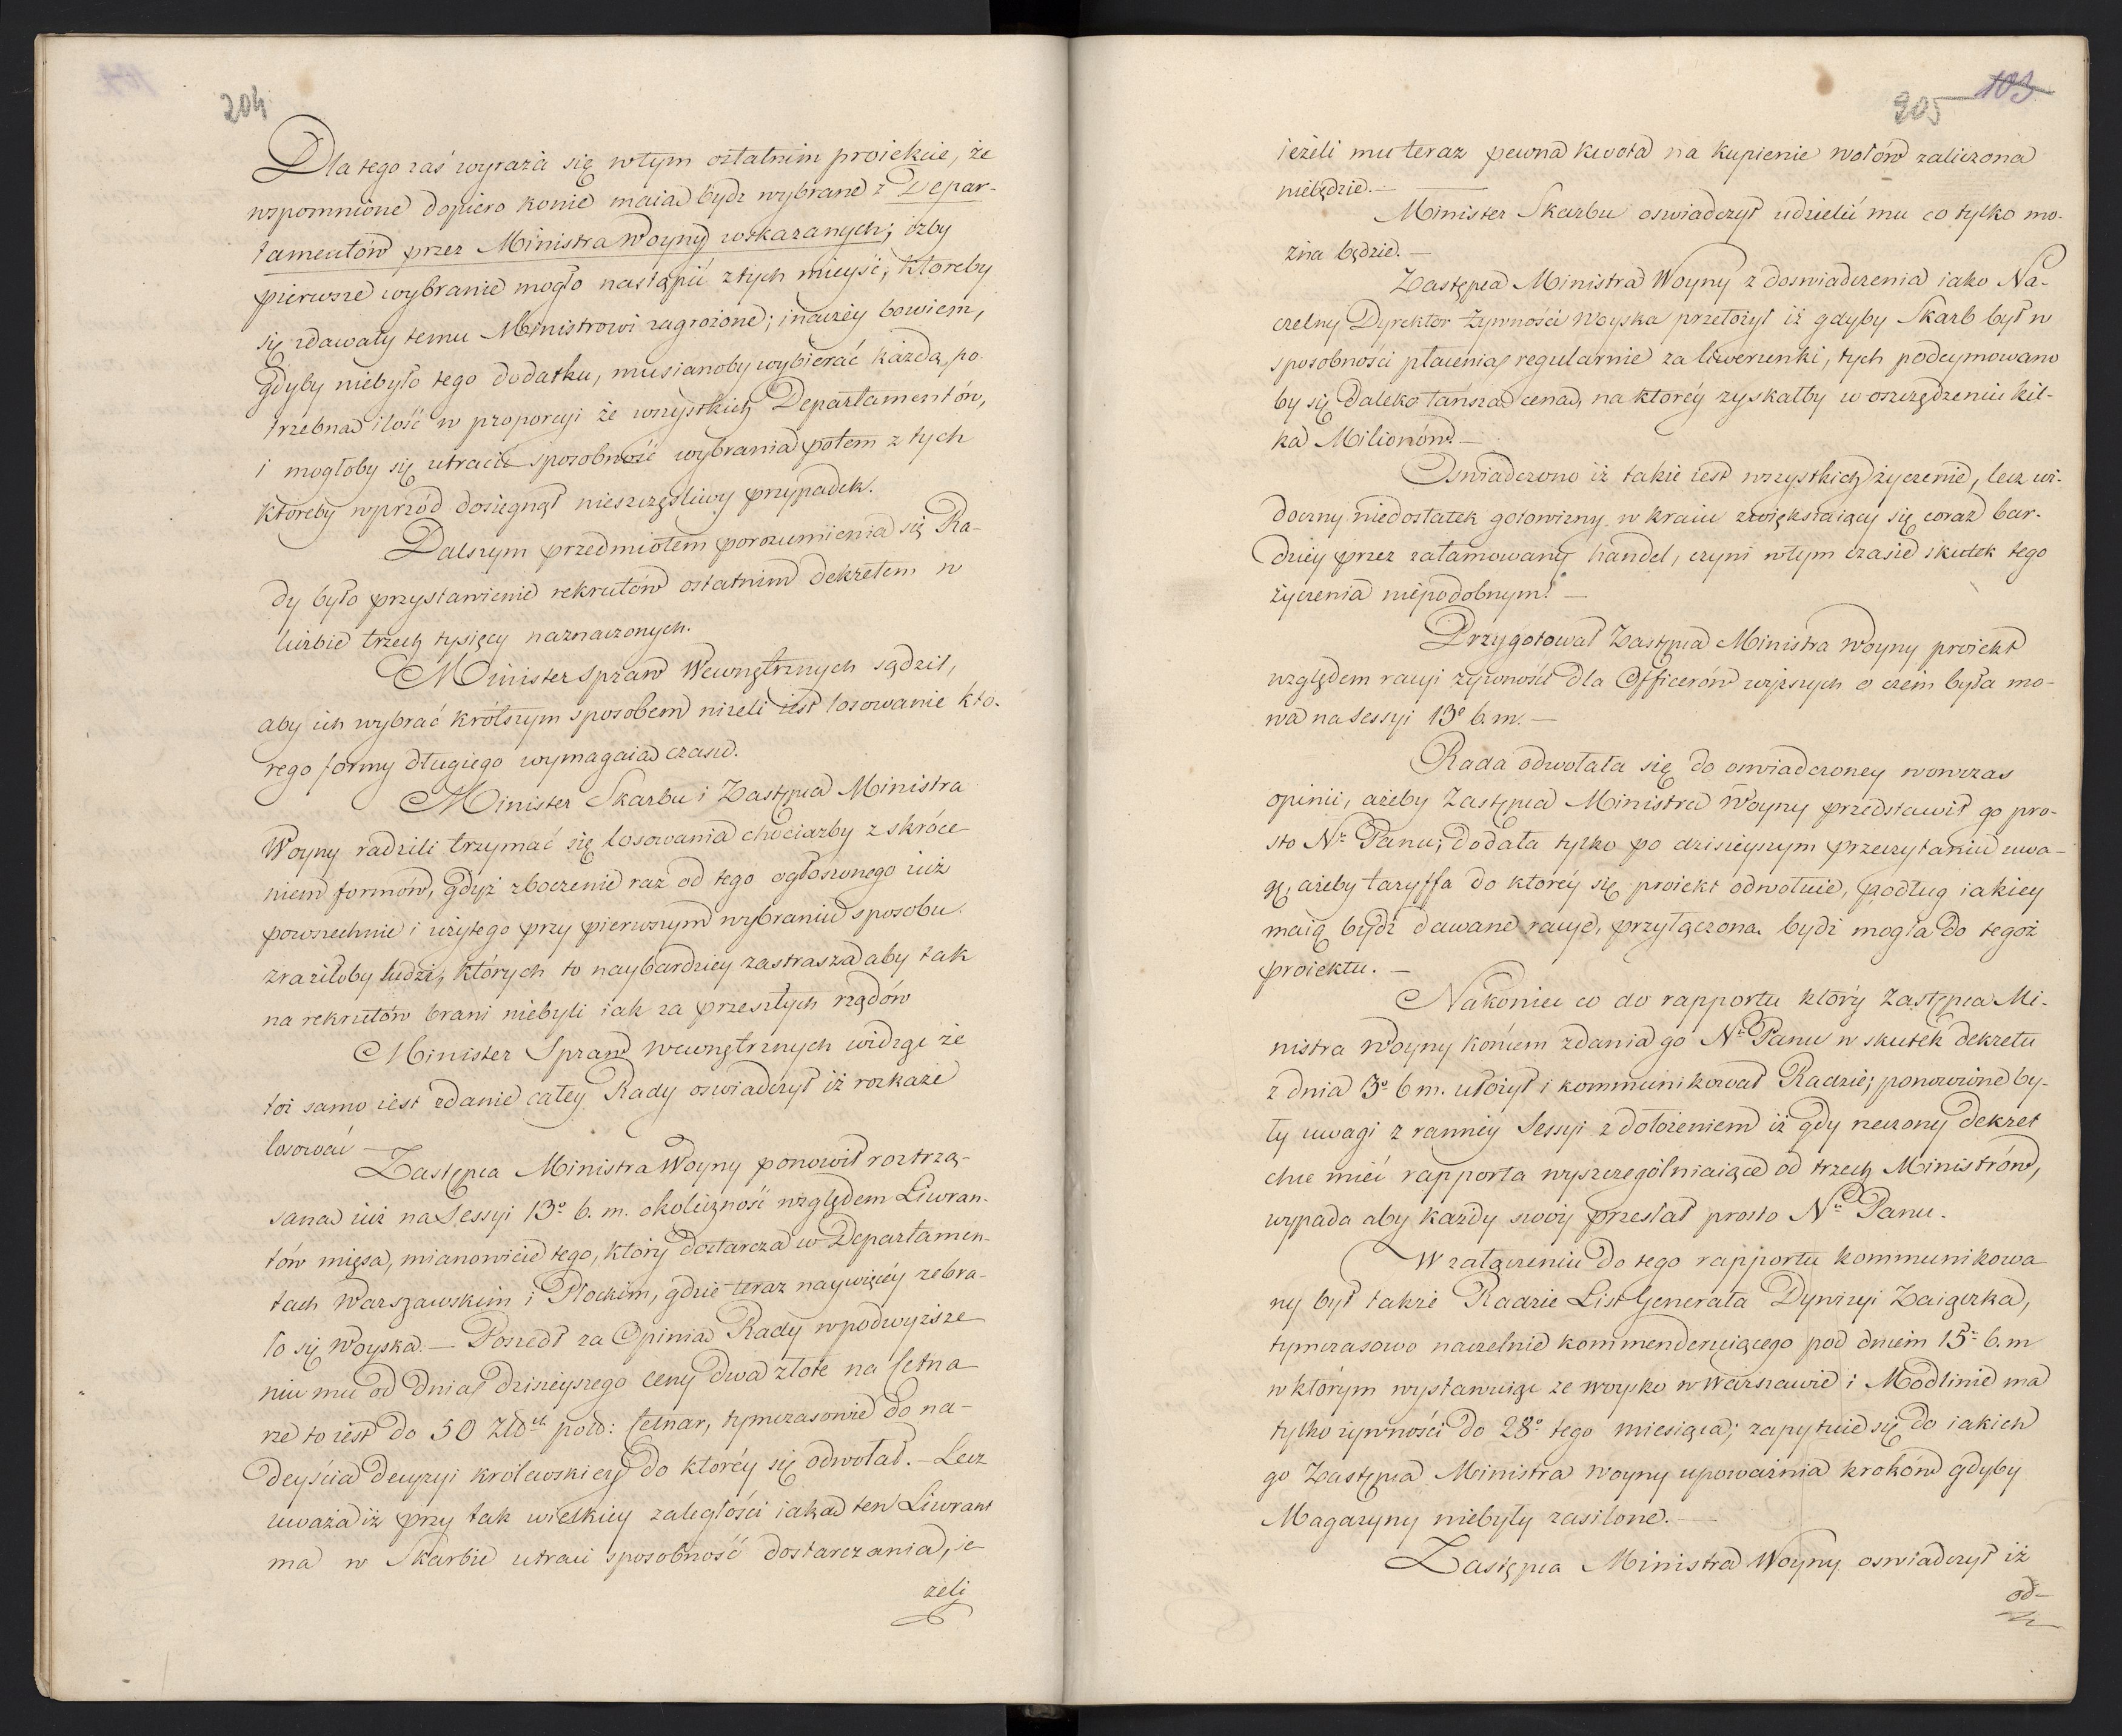 204
Dla tego zaś wyraża się w tym ostatnim proiekcie, że
wspomnione dopiero konie maią bydź wybrane z Depar-
tamentów przez Ministra Woyny wskazanych; iżby
pierwsze wybranie mogło nastąpić z tych mieysc, któreby
się zdawały temu Ministrowi zagrożone; inaczéy bowiem,
gdyby niebyło tego dodatku, musianoby wybierać każdą po-
trzebną ilość w proporcyi ze wszystkich Departamentów,
i mogłoby się utracić sposobność wybrania potem z tych
któreby wprzód dosięgnął nieszczęśliwy przypadek.
Dalszym przedmiotem porozumienia się Ra-
dy było przystawienie rekrutów ostatnim dekretem w
liczbie trzech tysięcy naznaczonych.
Minister Spraw Wewnętrznych sądził,
aby ich wybrać krótszym sposobem niżeli iest losowanie któ-
rego formy długiego wymagaią czasu.
Minister Skarbu i Zastępca Ministra
Woyny radzili trzymać się losowania chociażby z skróce-
niem formów, gdyż zboczenie raz od tego ogłoszonego iuż
powszechnie i użytego przy pierwszym wybraniu sposobu
zraziłoby ludzi, których to naybardziey zastrasza aby tak
na rekrutów brani niebyli iak za przeszłych rządów
Minister Spraw Wewnętrznych widząc że
toż samo iest zdanie całey Rady oswiadczył iż rozkaże
losować —
Zastępca Ministra Woyny ponowił roztrzą-
saną iuż na Sessyi 13º b. m. okoliczność względem Liwran-
tów mięsa, mianowicie tego, który dostarcza w Departamen-
tach Warszawskim i Płockim, gdzie teraz naywięcéy zebra-
ło się Woyska. — Poszedł za Opinią Rady w podwyższe-
niu mu od dnia dzisieyszego ceny dwa złote na Cetna-
rze to iest do 50 Złotch pold: Cetnar, tymczasowie do na-
deyścia decyzyi królewskiey do któréy się odwołał. — Lecz
uważa iż przy tak wielkiey zaległości iaką ten Liwrant
ma w Skarbie utraci sposobność dostarczania, ie-
żeli
205 103
ieżeli mu teraz pewna kwota na kupienie wołów zaliczona
niebędzie. —
Minister Skarbu oswiadczył udzielić mu co tylko mo-
żna będzie. —
Zastępca Ministra Woyny z doswiadczenia iako Na-
czelny Dyrektor Żywności Woyska przełożył iż gdyby Skarb był w
sposobności płacenia regularnie za liwerunki, tych podeymowano
by się daleko tańszą ceną, na któréy zyskałby w oszczędzeniu kil-
ka Milionów —
Oswiadczono iż takie iest wszystkich życzenie, lecz wi-
doczny niedostatek gotowizny w kraiu zwiększaiący się coraz bar-
dziey przez zatamowany handel, czyni w tym czasie skutek tego
życzenia niepodobnym. —
Przygotował Zastępca Ministra Woyny proiekt
względem racyi żywności dla Officerów wyższych o czem była mo-
wa na Sessyi 13º b. m. —
Rada odwołała się do oswiadczoney wowczas
opinii, ażeby Zastępca Ministra Woyny przedstawił go pro-
sto Nu Panu; dodała tylko po dzisieyszym przeczytaniu uwa-
gę, ażeby taryffa do któréy się proiekt odwołuie, podług iakiey
maią bydź dawane racye, przyłączona bydź mogła do tegoż
proiektu. —
Nakoniec co do rapportu który Zastępca Mi-
nistra Woyny końcem zdania go Nu Panu w skutek dekretu
z dnia 3º b. m. ułożył i kommunikował Radzie; ponowione by-
ły uwagi z ranney Sessyi z dołożeniem iż gdy rzeczony dekret
chce mieć rapporta wyszczególniaiące od trzech Ministrów,
wypada aby każdy swóy przesłał prosto Nu Panu.
W załączeniu do tego rapportu kommunikowa-
ny był także Radzie List Generała Dywizyi Zaiączka,
tymczasowo naczelnie kommenderuiącego pod dniem 15º b. m
w którym wystawuiąc że woysko w Warszawie i Modlinie ma
tylko żywności do 28º tego miesiąca; zapytuie się do iakich
go Zastępca Ministra Woyny upoważnia kroków gdyby
Magazyny niebyły zasilone. —
Zastępca Ministra Woyny oswiadczył iż
od-